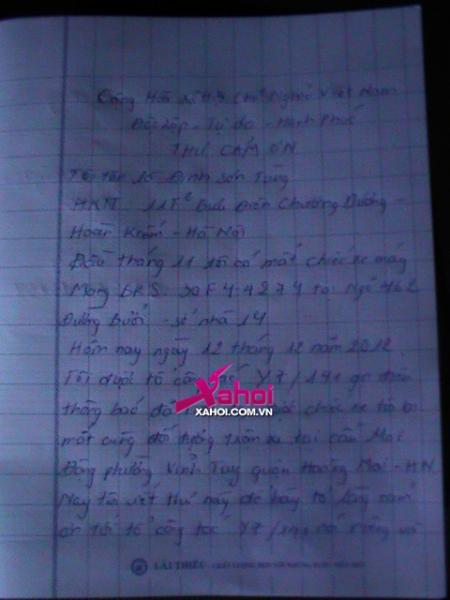 Cộng Hòa Xã Hội Chủ Nghĩa Việt Nam
Độc lập - Tự do - Hạnh Phúc
THƯ CẢM ƠN
Tôi tên là Đinh Sơn Tùng
HKTT 11T2 Chương Dương -
Hoàn Kiếm - Hà Nội
Đầu tháng 11 tôi có mất chiếc xe máy
Mang BKS: 30F4: 4274 tại Ngõ 462
Đường Bưởi - số nhà 14
Hôm nay ngày 12 tháng 12 năm 2012
Tôi được tổ công Y7/141 gọi điện
thông báo đã chiếc xe tôi bị
mất cùng đối tượng trên xe tại cầu Mai
Động phường Vĩnh Tuy quận Hoàng Mai - HN
Nay tôi viết thư này để bày tỏ lòng cảm
ơn tới tổ công tác Y7/141 nói riêng và
Xahoi
XAHOI.COM.VN
LÀI THIÊU